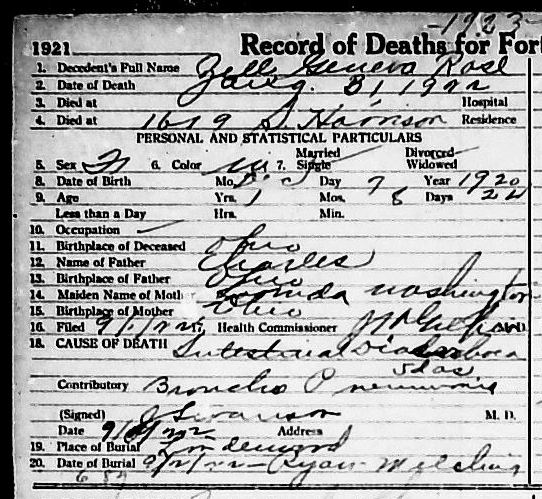 -1923-
1921 Record of Deaths for Fort
1. Decedent's Full Name Zella Geneva Rose
2. Date of Death Aug. 31, 1922
3. Died at Hospital
4. Died at 1619 S. Harrison Residence
PERSONAL AND STATISTICAL PARTICULARS
5. Sex F 6. Color W 7. Married Single Divorced Widowed
8. Date of Birth Mo. Day 9 Year 1920
9. Age Yrs. 1 Mos. 8 Days 22
Less than a Day Hrs. Min.
10. Occupation
11. Birthplace of Deceased Ohio
12. Name of Father Charles
13. Birthplace of Father Ohio
14. Maiden Name of Moth Washington
15. Birthplace of Mother Ohio
16. Filed 9/1/22 17. Health Commissioner M.D.
18. CAUSE OF DEATH Intestinal
5 das
Contributory Broncho Pneumonia
(Signed) J Swanson M. D.
Date 9/ /22 Address
19. Place of Burial Lindenwood
20. Date of Burial 9/2/22